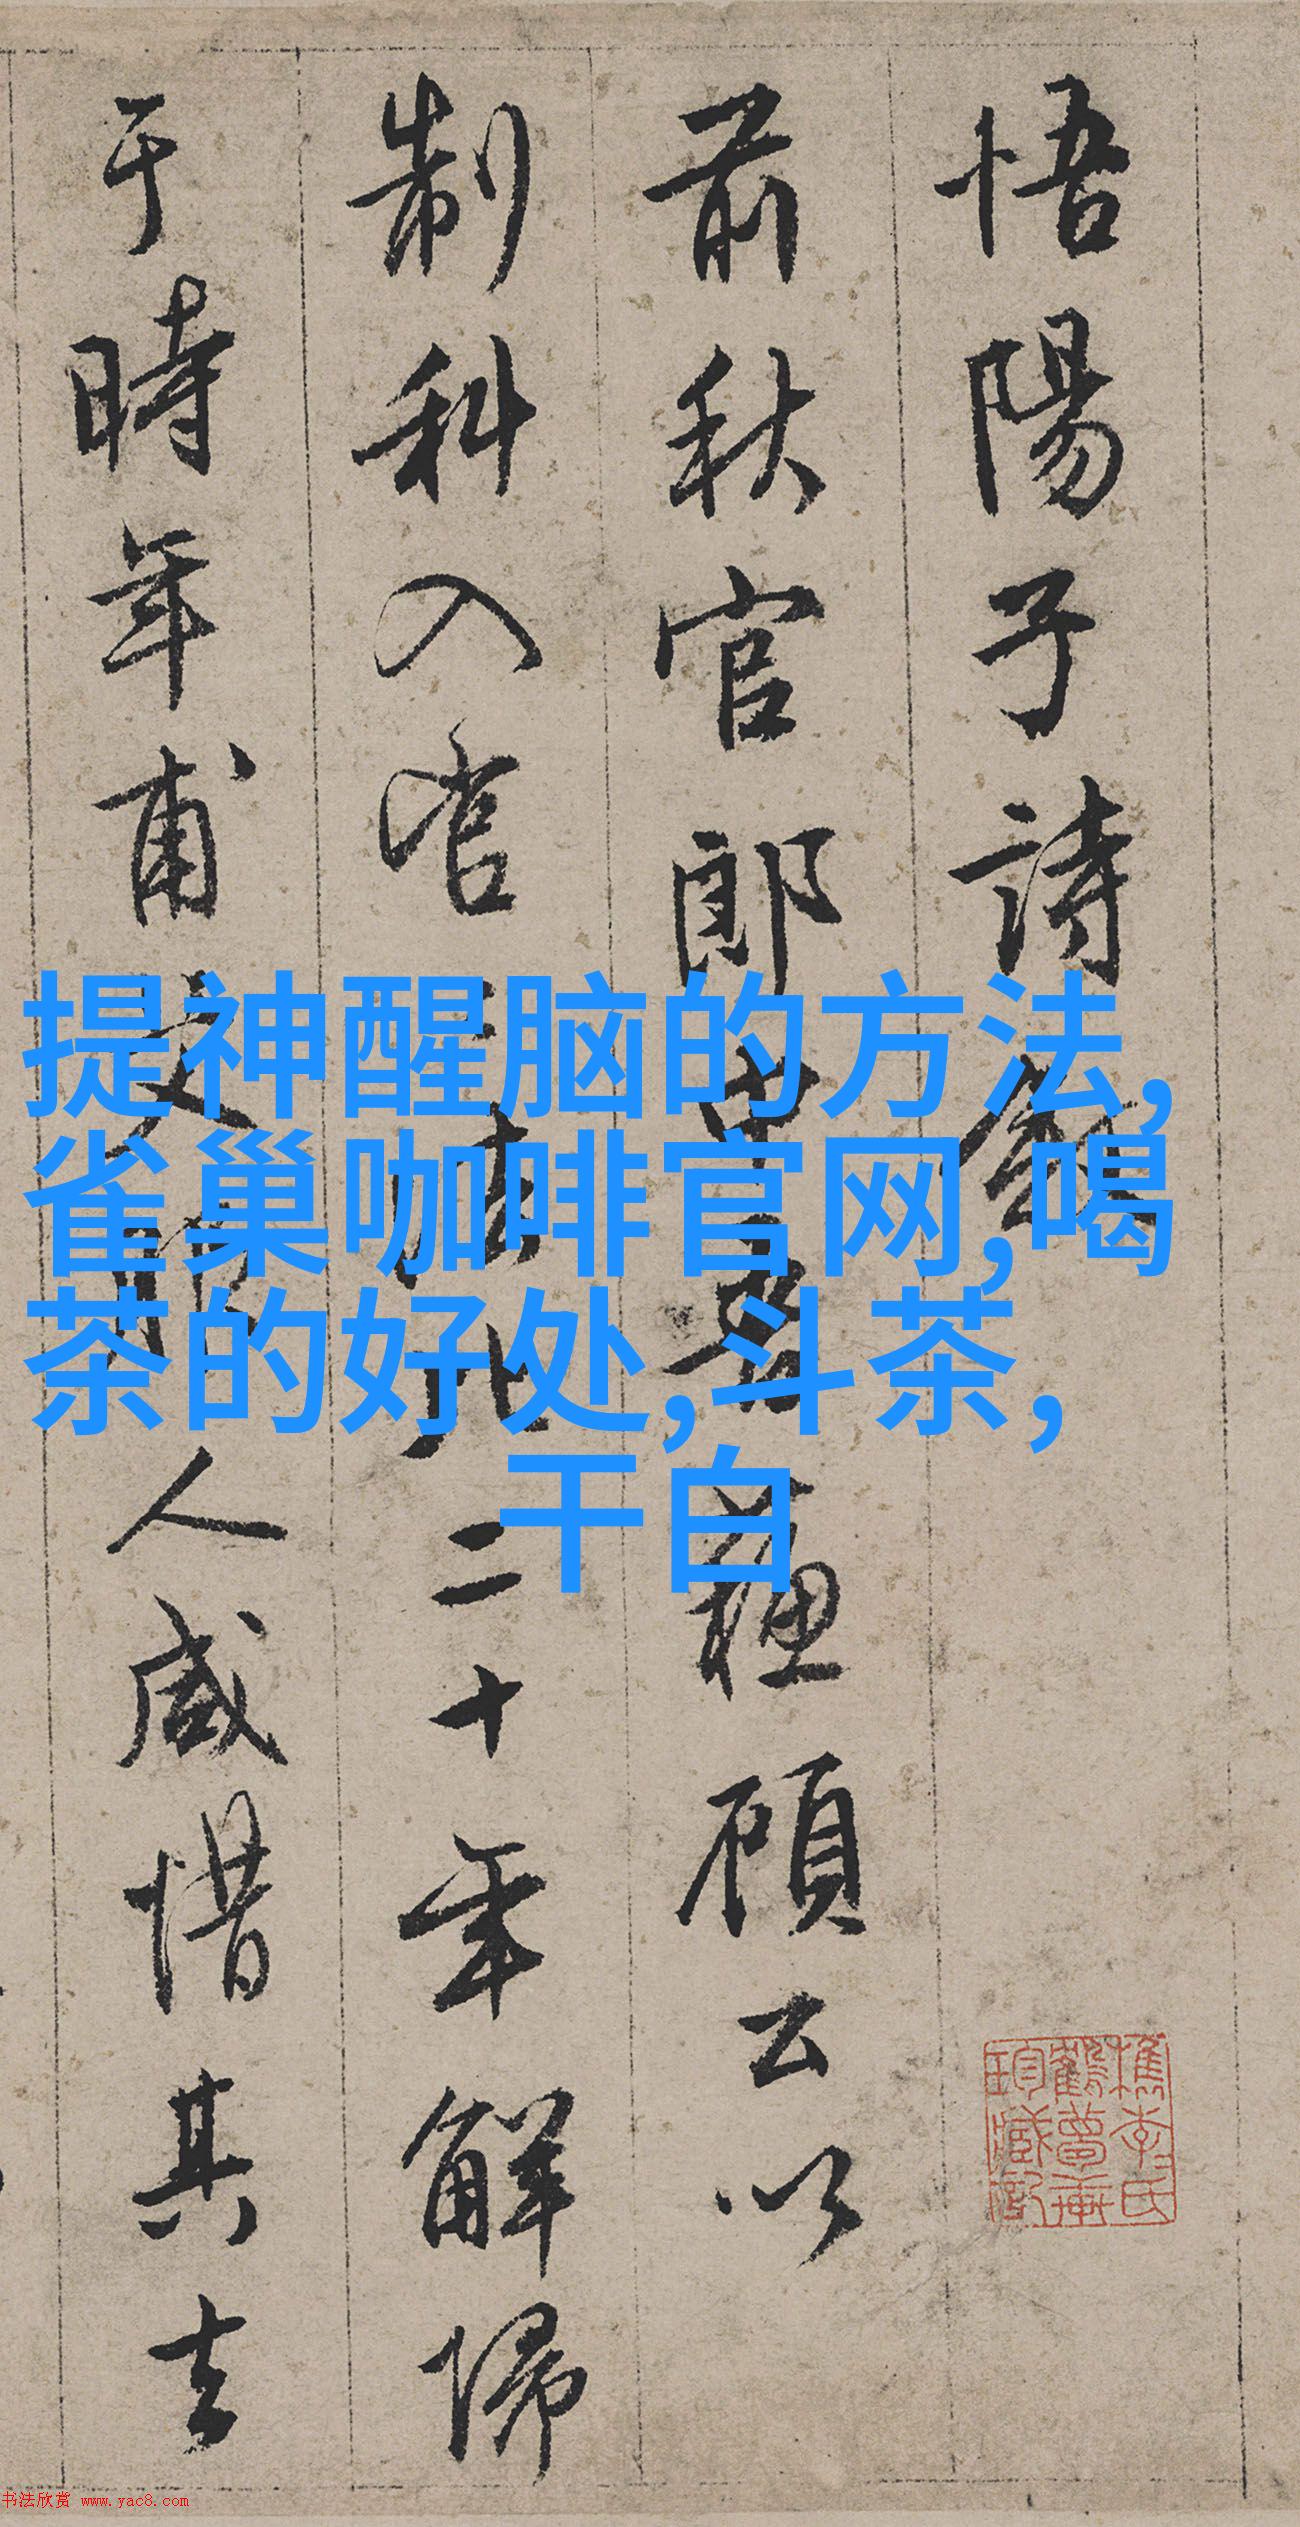 悟陽子詩敘
前秋官郎
蘓顧公以
制科入官
二十年解歸
于時年甫
人咸惜其去
提神醒脑的方法,
雀巢咖啡官网,喝
茶的好处,斗茶,
干白
李氏
书法欣赏 www.yac8.com